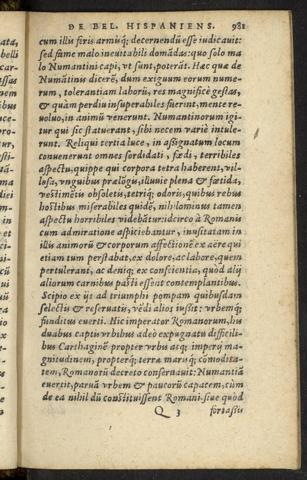 DE BEL. HISPANIENS. 981
cum illis firis armiúq; decernendũ esse iudicauit:
sed fame malo ineuitabili domãdas: quo solo ma
lo Numantini capi, vt sunt, poterãt. Hæc qua de
Numãtinis dicerẽ, dum exiguum eorum nume-
rum, tolerantiam laborũ, res magnificè gestas,
& quàm perdiu insuperabiles fuerint, mente re-
uoluo, in animũ venerunt. Numantinorum igi-
tur qui sic statuerant, sibi necem variè intule-
runt. Reliqui tertia luce, in assignatum locum
conuenerunt omnes sordidati, fœdi, terribiles
aspectu, quippe qui corpora tetra haberent, vil-
losa, vnguibus prælõgis, illuuie plena & fœtida,
vestimẽtis obsoletis, tetriq; odoris, quibus rebus
hostibus miserabiles quidẽ, nihilominus tamen
aspectu horribiles videbãtur: idcirco à Romanis
cum admiratione aspiciebantur, inusitatam in
illis animorũ & corporum affectionẽ ex aëre qui
etiam tum perstabat, ex dolore, ac labore, quem
pertulerant, ac deniq; ex conscientia, quòd alij
aliorum carnibus pasti essent contemplantibus.
Scipio ex ijs ad triumphi pompam quibusdam
selectis & reseruatis, vẽdi alios iussit: vrbemq;
funditus euertit. Hic imperator Romanorum, his
duabus captis vrbibus adeò expugnatu difficili-
bus Carthaginẽ propter vrbis atq; imperij ma-
gnitudinem, propterq; terra mariq; cõmodita-
tem, Romanorũ decreto conseruauit: Numantiã
euertit, paruã vrbem & paucorũ capacem, cùm
de ea nihil dũ constituissent Romani. siue quòd
Q 3 fortassis
ata,
belli
car-
ssas
nem
nt